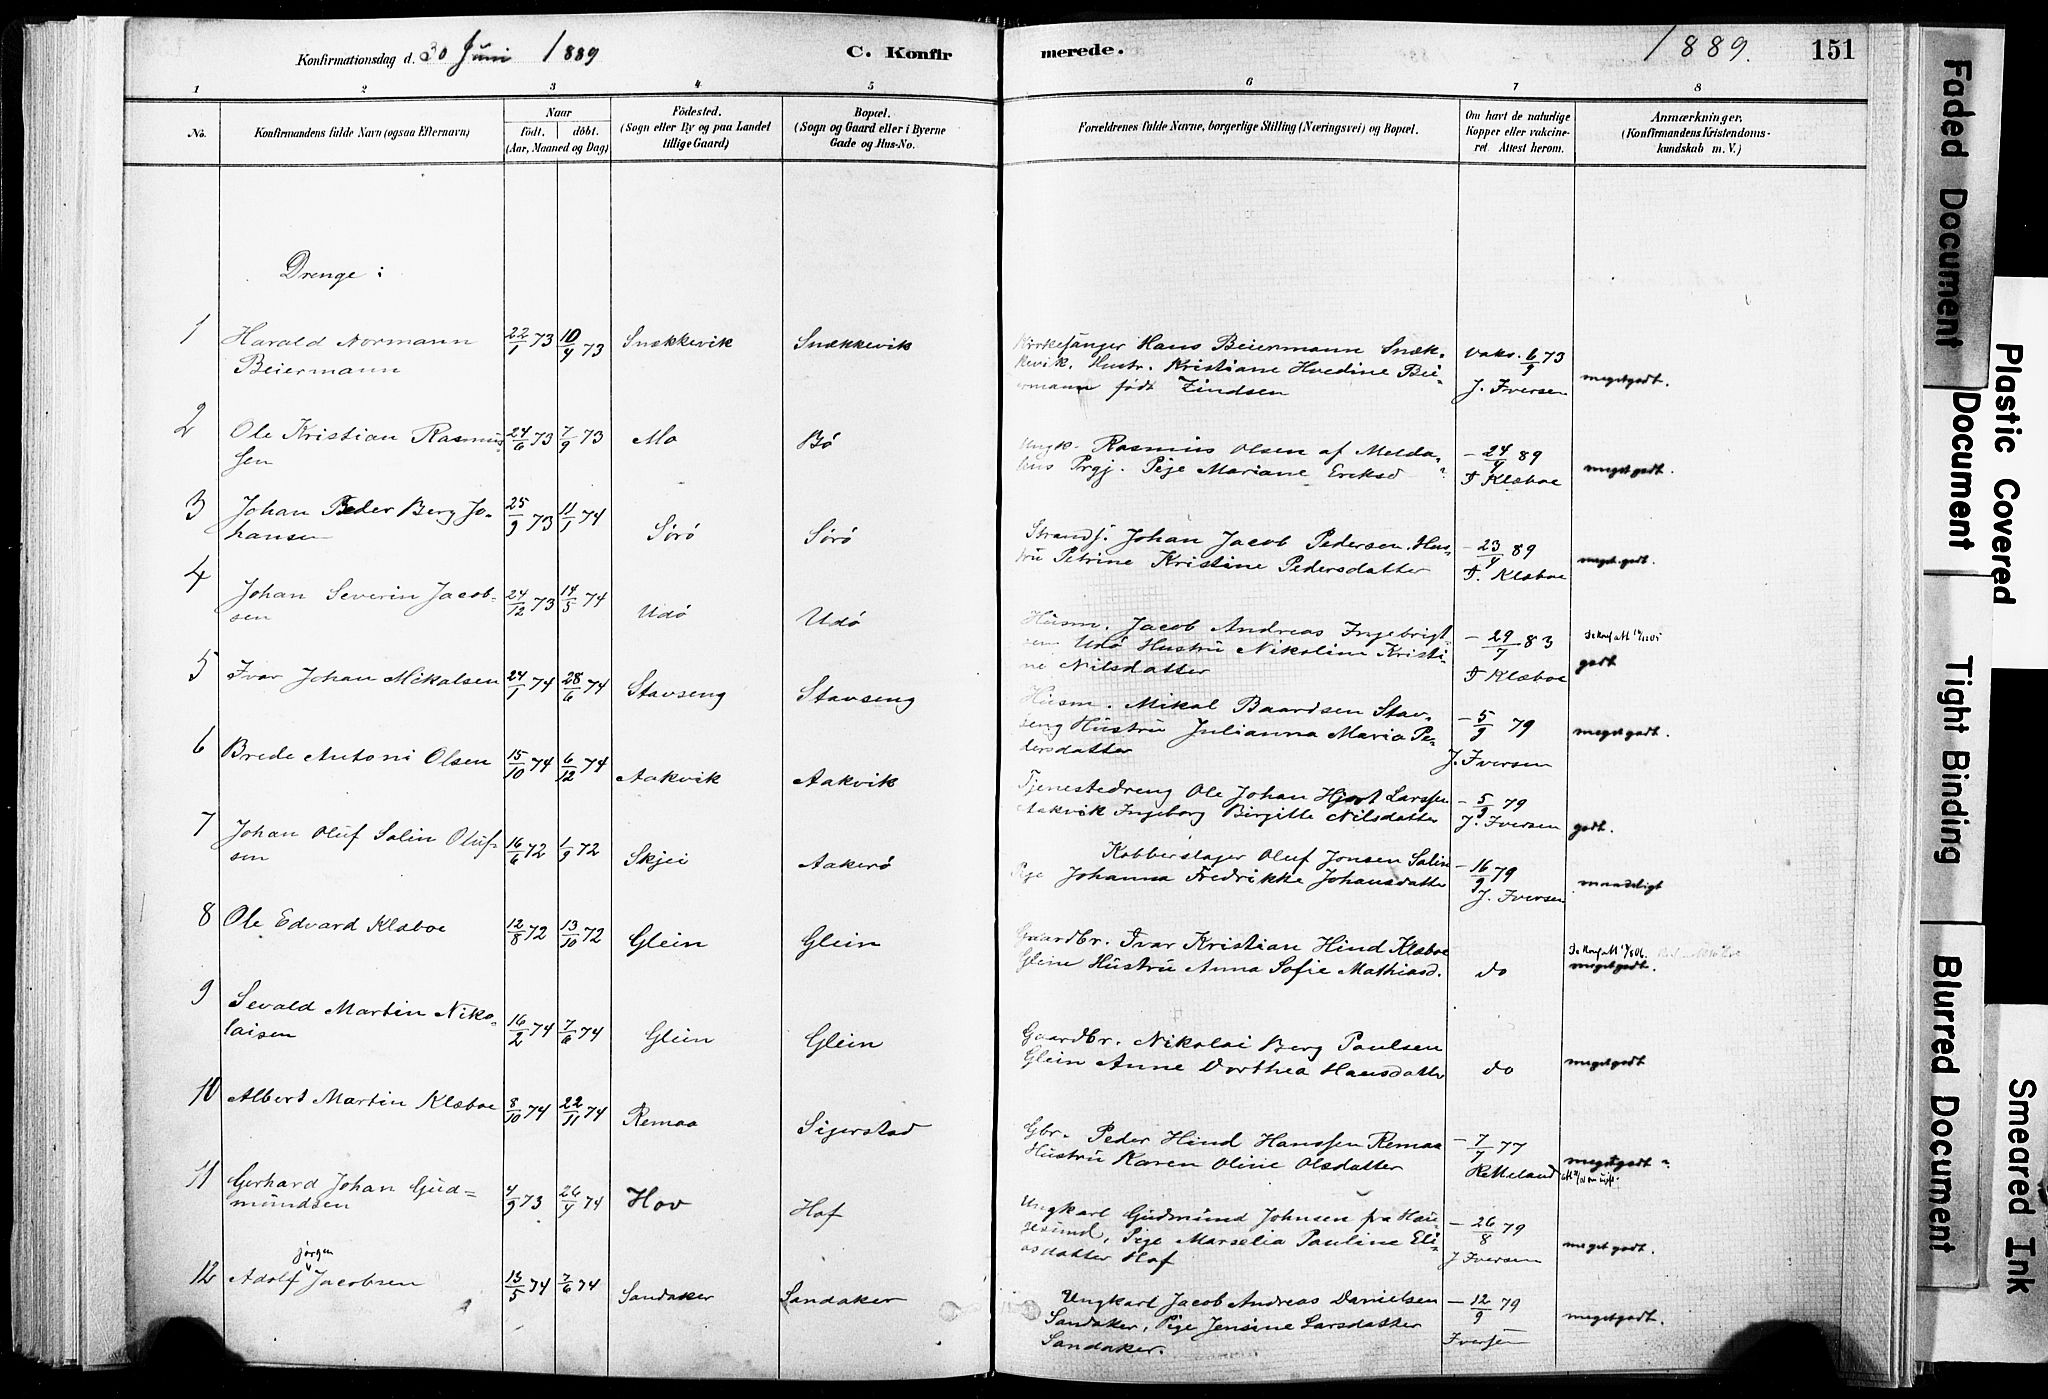 Konfirmationsdag d. 30 Juni 1889
C. Konfirmerede.
1889.
151
1 2 3 4 5 6 7 8
No.
Konfirmandens fulde Navn (ogsaa Efternavn)
Naar
födt. döbt.
(Aar, Maaned og Dag)
Födested.
(Sogn eller By og paa Landet
tillige Gaard)
Bopæl.
(Sogn og Gaard eller i Byerne
Gade og Hus-No.
Forældrenes fulde Navne, borgerlige Stilling (Næringsvei) og Bopæl.
Om havt de naturlige
Kopper eller vakcine-
ret. Attest herom.
Anmærkninger.
(Konfirmandens Kristendoms-
kundskab m. V.)
Drenge:
1 Harald Normann 22/1 73 10/4 73 Snækkevik Snækkevik
Beiermann
Kirkesanger Hans Beiermann Snæk-
kevik. Hustr. Kristiane Hvedine Bei-
ermann født Zindsen
Vaks. 6/9 73
J. Iversen
megetgodt.
2 Ole Kristian Rasmus 24/6 73 7/9 73 Mo Bø
sen
Ungk. Rasmus Olsen af Melda-
hus Prgj. Pige Mariane Eriksd
- 24/4 89
F Klæboe
megetgodt.
3 Johan Peder Berg Jo- 25/9 73 11/1 74 Sørø Sørø
hansen
Strands. Johan Jacob Pedersen. Hus-
tru Petrine Kristine Pedersdatter
- 23/4 89
F. Klæboe
meget godt.
4 Johan Severin Jacob- 24/12 73 14/5 74 Udø Udø
sen
Husm. Jacob Andreas Ingebrigt-
sen Udø Hustru Nikoline Kristi-
ne Nilsdatter
- 29/7 83
F Klæboe
godt
5 Ivar Johan Mikalsen 24/1 74 28/6 74 Stavseng Stavseng
Husm. Mikal Baardsen Stav-
seng Hustru Julianna Maria Pe-
dersdatter
- 5/9 79
J. Iversen
megetgodt.
6 Brede Antoni Olsen 15/10 74 6/12 74 Aakvik Aakvik
Tjenestedreng Ole Johan Hjort Larssen
Aakvik Ingeborg Birgitte Nilsdatter
- 5/9 79
J. Iversen
godt.
7 Johan Oluf Salin Oluf- 16/6 72 1/9 72 Skjei Aakerø
sen
Kobberslager Oluf Jonsen Salin
Pige Johanna Fredrikke Johansdatter
- 16/9 79
J. Iversen
maadeligt
8 Ole Edvard Klæboe 12/8 72 13/10 72 Glein Glein
Gaardbr. Ivar Kristian Hind Klæboe
Glein Hustru Anna Sofie Mathiasd.
do
megetgodt.
9 Sevald Martin Niko- 16/2 74 7/6 74 Glein Glein
laisen
Gaardbr. Nikolai Berg Paulsen
Glein Anne Dorthea Hansdatter
do
megetgodt
10 Albert Martin Klæboe 8/10 74 22/11 74 Remaa Sigerstad
Gbr. Peder Hind Hanssen Remaa
Hustru Karen Oline Olsdatter
- 7/7 77
Ketteland
megetgodt
11 Gerhard Johan Gud= 4/9 73 26/4 74 Hov Hof
mundsen
Ungkarl Gudmund Johnsen fra Hau-
gesund, Pige Marselia Pauline Eli-
asdatter Hof
- 26/8 79
J Iversen
megetgodt.
12 Adolf Jørgen Jacobsen 13/5 74 7/6 74 Sandaker Sandaker
Ungkarl Jacob Andreas Danielsen
Sandaker, Pige Jensine Larsdatter
Sandaker.
- 12/9 79
Iversen
megetgodt.
Faded Document
Plastic Covered Document
Tight Binding
Blurred Document
Smeared Ink